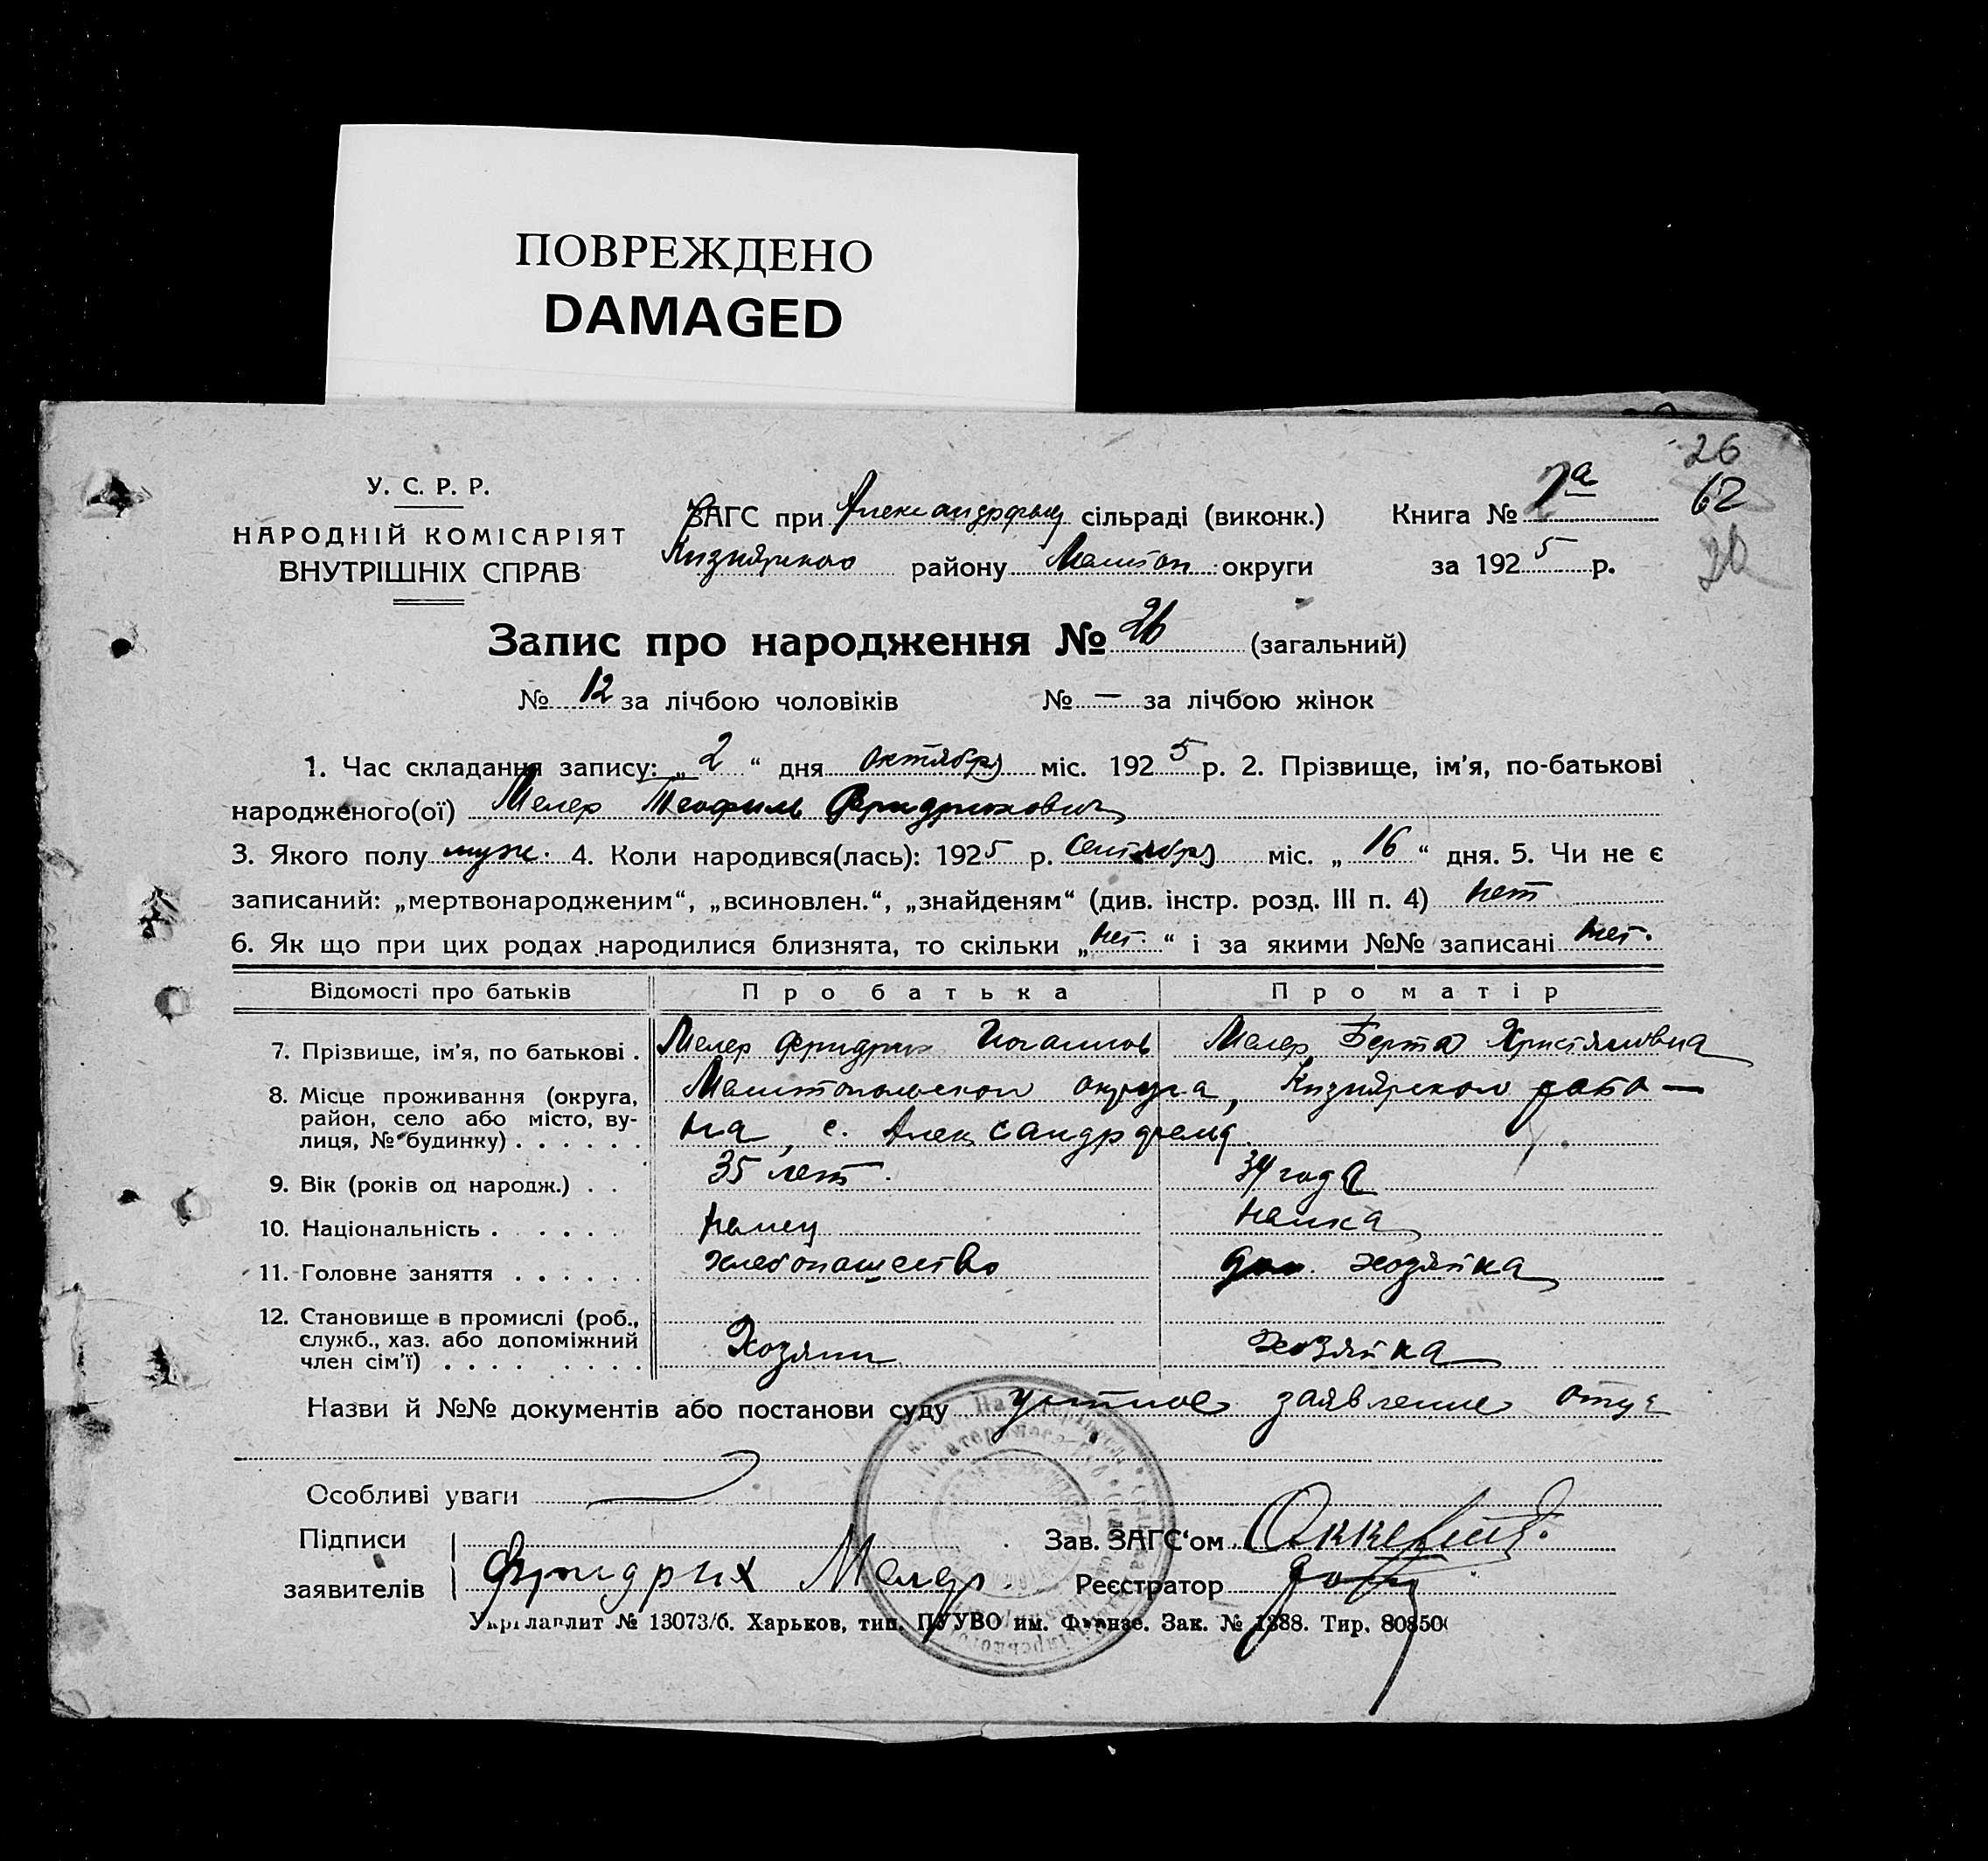 ПОВРЕЖДЕНО
DAMAGED
26
62
У. С. Р. Р.
НАРОДНІЙ КОМІСАРІЯТ
ВНУТРІШНІХ СПРАВ
ЗАГС при Александрфельд сільраді (виконк.)
Книга №
района Мелитоп. округи
за 1925 р.
Запис про народження № 26 (загальний)
№ 12 за лічбою чоловіків № — за лічбою жінок
1. Час складання запису: „2“ дня октября міс. 1925 р. 2. Прізвище, ім'я, по-батькові
народженого(ої) Мелер Теофиль Фридрихович
3. Якого полу муж. 4. Коли народився(лась): 1925 р. Сентября міс. „16“ дня. 5. Чи не є
записаний: „мертвонародженим“, „всиновлен.“, „знайденям“ (див. інстр. розд. III п. 4) нет
6. Як що при цих родах народилися близнята, то скільки „нет.“ і за якими №№ записані нет.
Відомості про батьків Про батька Про матір
7. Прізвище, ім'я, по батькові . Мелер Фридрих Иоганнов Мелер Берта Христяновна
8. Місце проживання (округа,
район, село або місто, ву-
лиця, № будинку) . . . . . .
Мелитопольской округа, Кизиярского райо—
на, с. Александрфельд.
9. Вік (років од народж.) . . 35 лет. 34 года
10. Національність . . . . . . немец немка
11. Головне заняття . . . . . . хлебопашество дом. хозяйка
12. Становище в промислі (роб.,
служб., хаз. або допоміжний
член сім'ї) . . . . . . . .
Хозяин хозяйка
Назви й №№ документів або постанови суду устное заявление отца
Особливі уваги
Підписи
заявителів
Фридрих Мелер.
Зав. ЗАГС'ом
Реєстратор
Укрглавлит № 13073/б. Харьков, тип. ПУУВО им. Фрунзе. Зак. № 1388. Тир. 808500